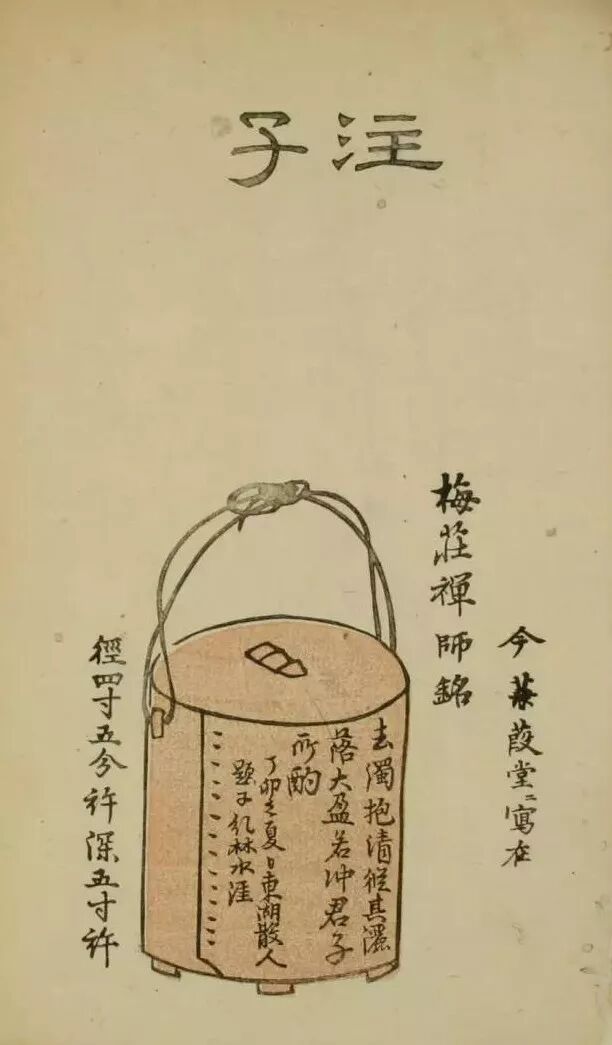 注子
今蒹葭堂ニ寫在
梅莊禪師銘
去濁抱清從其灑
落大盈若冲君子
所酌
丁卯之夏日東湖散人
題于孔林水涯
徑四寸五分許深五寸許